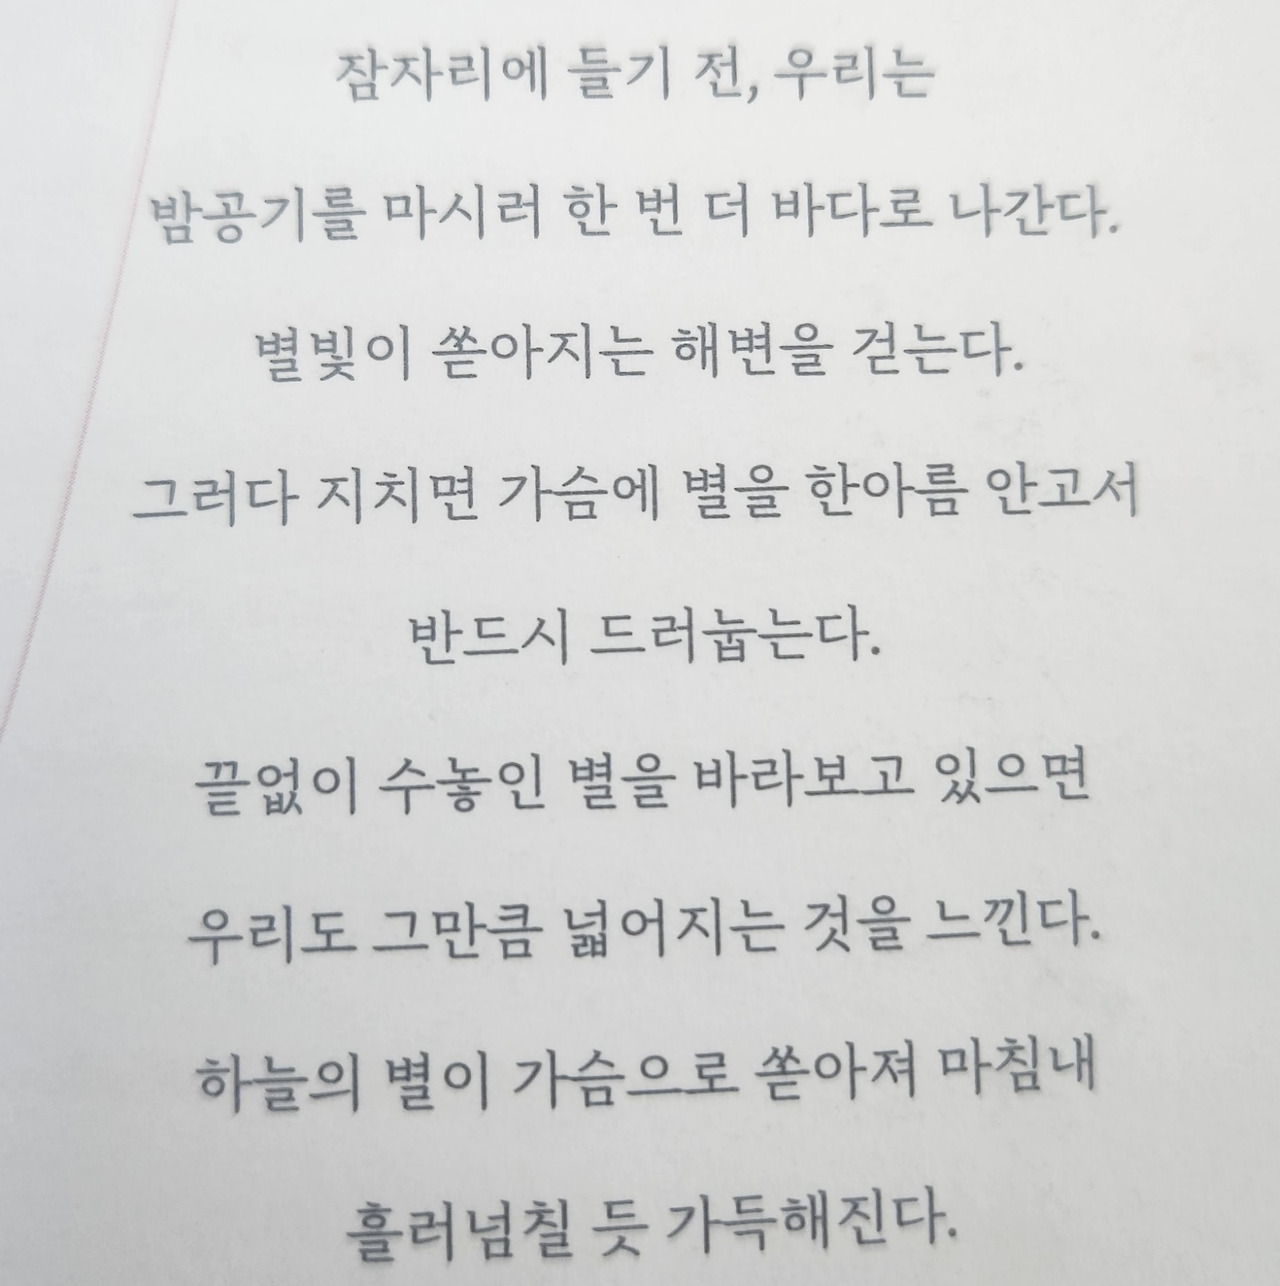 잠자리에 들기 전, 우리는
밤공기를 마시러 한 번 더 바다로 나간다.
별빛이 쏟아지는 해변을 걷는다.
그러다 지치면 가슴에 별을 한아름 안고서
반드시 드러눕는다.
끝없이 수놓인 별을 바라보고 있으면
우리도 그만큼 넓어지는 것을 느낀다.
하늘의 별이 가슴으로 쏟아져 마침내
흘러넘칠 듯 가득해진다.